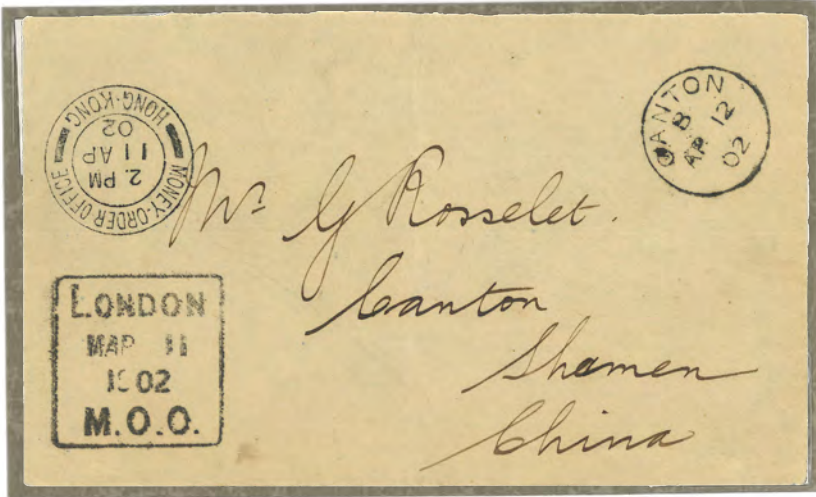 MONEY-ORDER OFFICE
HONG-KONG
2. PM
11 AP
02
CANTON
B
AP 12
02
Mr. G Rosselet.
Canton
Shamen
China
LONDON
MAR 11
1902
M.O.O.